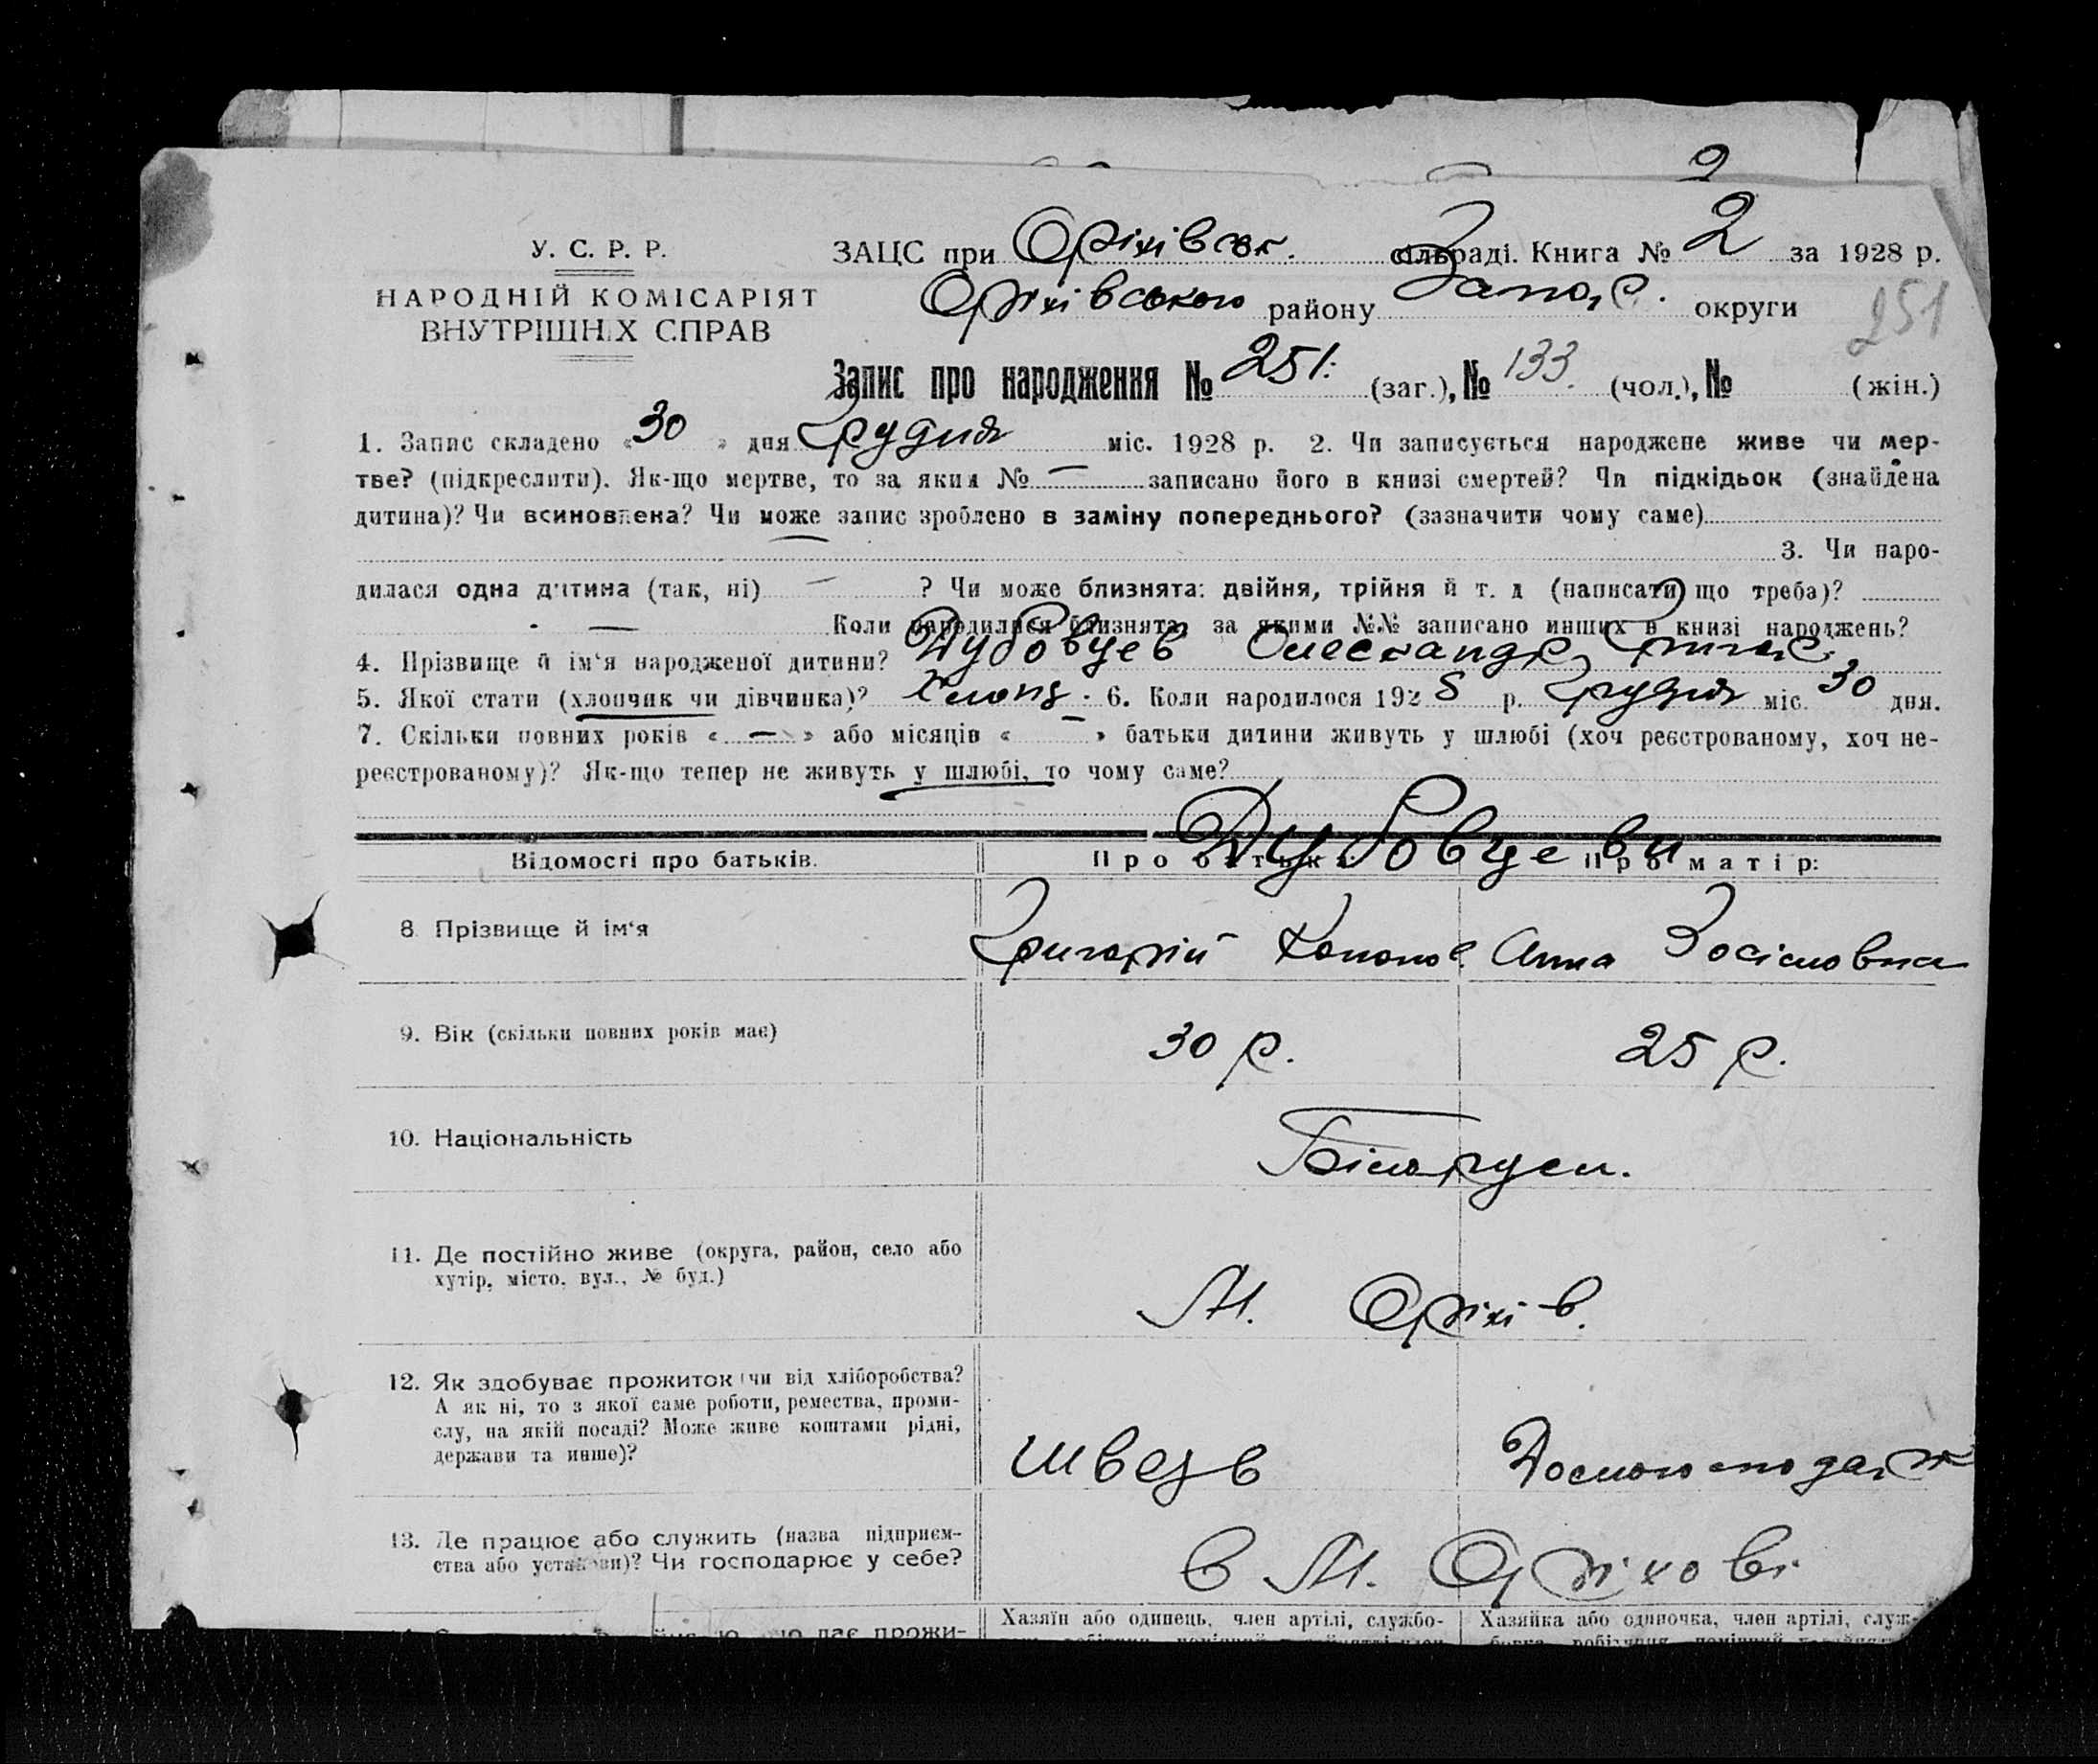 У. С. Р. Р.
НАРОДНІЙ КОМІСАРІЯТ
ВНУТРІШНІХ СПРАВ
ЗАЦС при Оріхівськ. сільраді. Книга № 2 за 1928 р.
Оріхівського району Запор. округи
251
Запис про народження № 251. (заг.), № 133. (чол.), № (жін.)
1. Запис складено « 30 » дня Грудня міс. 1928 р. 2. Чи записується народжене живе чи мер-
тве? (підкреслити). Як-що мертве, то за яким № — записано його в книзі смертей? Чи підкідьок (знайдена
дитина)? Чи всиновлена? Чи може запис зроблено в заміну попереднього? (зазначити чому саме)
3. Чи наро-
дилася одна дитина (так, ні) — ? Чи може близнята: двійня, трійня й т. д (написати що треба)?
— Коли народилися близнята, за якими №№ записано инших в книзі народжень?
4. Прізвище й ім‘я народженої дитини? Дубовцев Олександр Григ.
5. Якої стати (хлопчик чи дівчинка)? Хлопч. 6. Коли народилося 1928 р. Грудня міс. 30 дня.
7. Скільки повних років « — » або місяців « — » батьки дитини живуть у шлюбі (хоч реєстрованому, хоч не-
реєстрованому)? Як-що тепер не живуть у шлюбі, то чому саме?
Дубовцеви
Відомості про батьків. Про батька Про матір:
8. Прізвище й ім‘я Григорій Кононов. Анна Зосімовна
9. Вік (скільки повних років має) 30 р. 25 р.
10. Національність Білорусы.
11. Де постійно живе (округа, район, село або
хутір, місто, вул., № буд.) М. Оріхів.
12. Як здобуває прожиток (чи від хліборобства?
А як ні, то з якої саме роботи, ремества, проми-
слу, на якій посаді? Може живе коштами рідні,
держави та инше)? швець Домогосподар.
13. Де працює або служить (назва підприєм-
ства або установи)? Чи господарює у себе? в М. Оріхові
Хазяїн або одинець, член артілі, службо- Хазяйка або одиночка, член артілі, служ-